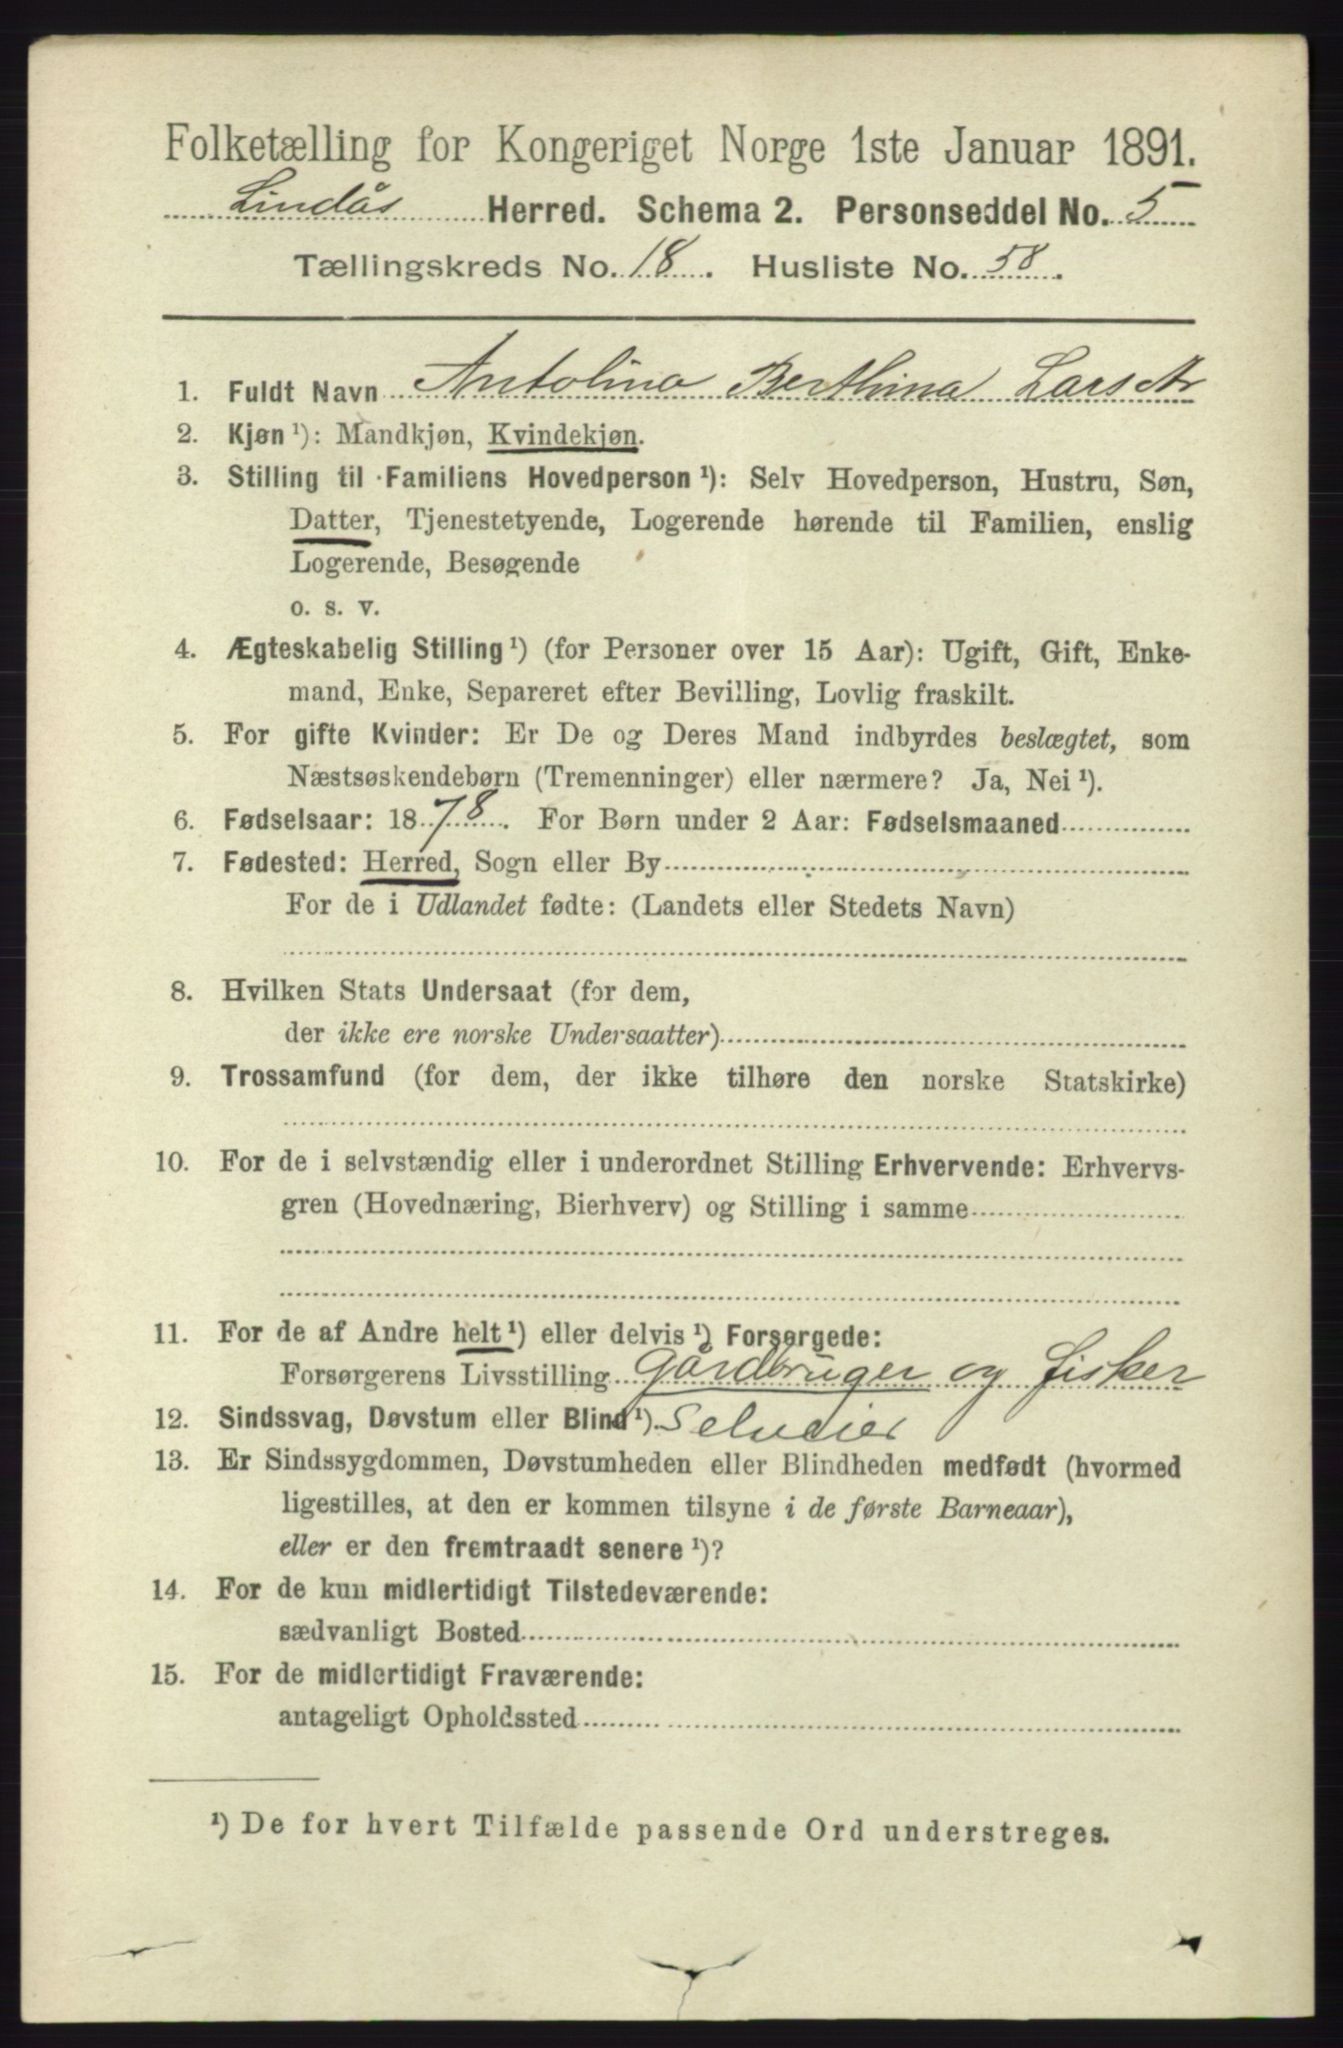 Folketælling for Kongeriget Norge 1ste Januar 1891.
Lindås Herred. Schema 2. Personseddel No. 5
Tællingskreds No. 18. Husliste No. 58.
1. Fuldt Navn Antolina Berthina Lars dtr
2. Kjøn ¹): Mandkjøn, Kvindekjøn.
3. Stilling til Familiens Hovedperson ¹): Selv Hovedperson, Hustru, Søn,
Datter, Tjenestetyende, Logerende hørende til Familien, enslig
Logerende, Besøgende
o. s. v.
4. Ægteskabelig Stilling ¹) (for Personer over 15 Aar): Ugift, Gift, Enke-
mand, Enke, Separeret efter Bevilling, Lovlig fraskilt.
5. For gifte Kvinder: Er De og Deres Mand indbyrdes beslægtet, som
Næstsøskendebørn (Tremenninger) eller nærmere? Ja, Nei ¹).
6. Fødselsaar: 1878. For Børn under 2 Aar: Fødselsmaaned
7. Fødested: Herred, Sogn eller By
For de i Udlandet fødte: (Landets eller Stedets Navn)
8. Hvilken Stats Undersaat (for dem,
der ikke ere norske Undersaatter)
9. Trossamfund (for dem, der ikke tilhøre den norske Statskirke)
10. For de i selvstændig eller i underordnet Stilling Erhvervende: Erhvervs-
gren (Hovednæring, Bierhverv) og Stilling i samme
11. For de af Andre helt ¹) eller delvis ¹) Forsørgede:
Forsørgerens Livsstilling Gårdbruger og fisker
12. Sindssvag, Døvstum eller Blind ¹). Selveier
13. Er Sindssygdommen, Døvstumheden eller Blindheden medfødt (hvormed
ligestilles, at den er kommen tilsyne i de første Barneaar),
eller er den fremtraadt senere ¹)?
14. For de kun midlertidigt Tilstedeværende:
sædvanligt Bosted
15. For de midlertidigt Fraværende:
antageligt Opholdssted
¹) De for hvert Tilfælde passende Ord understreges.